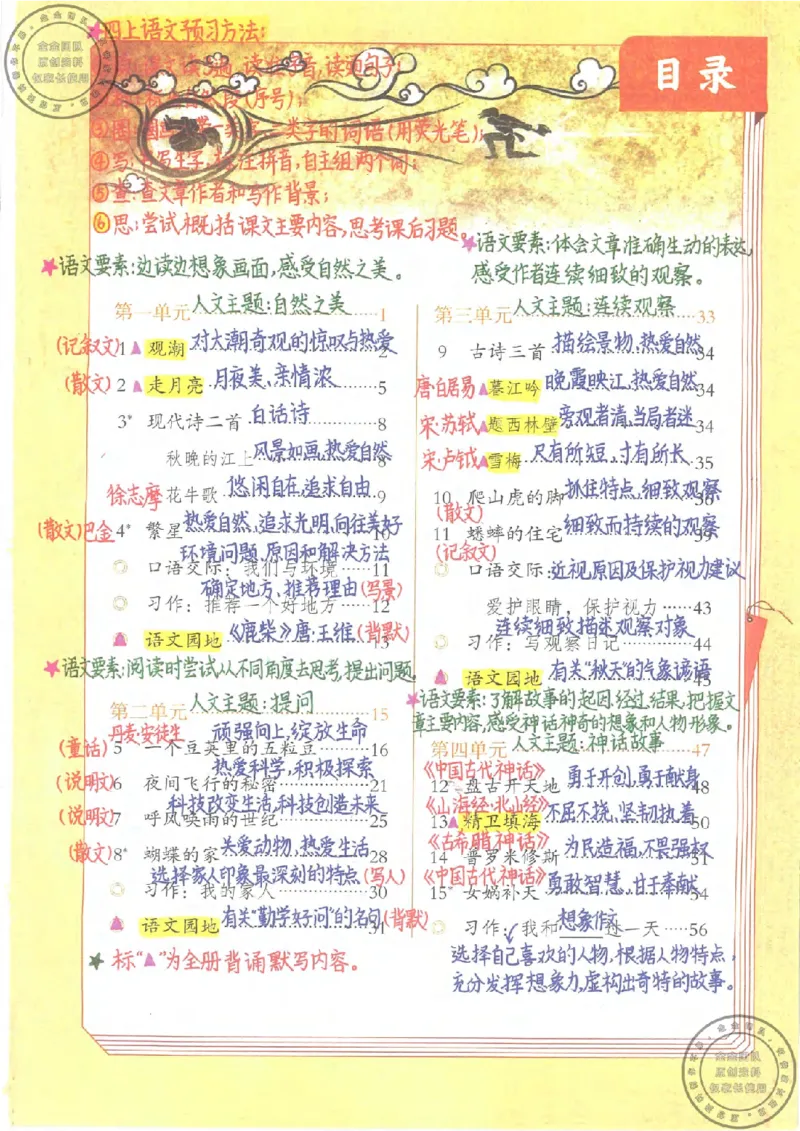 ★四上语文预习方法:
目录
④写:书写生字,标注拼音,自主组两个词;
⑤查:查文章作者和写作背景;
⑥思:尝试概括课文主要内容,思考课后习题。
★语文要素:边读边想象画面,感受自然之美。
第一单元 人文主题:自然之美 1
(记叙文) 1 ▲ 观潮 对大潮奇观的惊叹与热爱 2
(散文) 2 ▲ 走月亮 月夜美、亲情浓 5
3* 现代诗二首 白话诗 8
秋晚的江上 风景如画,热爱自然 8
徐志摩 花牛歌 悠闲自在,追求自由 9
(散文)巴金 4* 繁星 热爱自然、追求光明,向往美好 10
环境问题、原因和解决方法
口语交际:我们与环境 11
确定地方、推荐理由(写景)
习作:推荐一个好地方 12
▲ 语文园地 《鹿柴》唐·王维(背默) 13
★语文要素:阅读时尝试从不同角度去思考,提出问题。
第二单元 人文主题:提问 15
丹麦·安徒生 顽强向上,绽放生命
(童话) 5 一个豆荚里的五粒豆 16
热爱科学,积极探索
(说明文) 6 夜间飞行的秘密 21
科技改变生活,科技创造未来
(说明文) 7 呼风唤雨的世纪 25
(散文) 8* 蝴蝶的家 关爱动物,热爱生活 28
选择家人印象最深刻的特点(写人)
习作:我的家人 30
▲ 语文园地 有关“勤学好问”的名句(背默) 31
★标“▲”为全册背诵默写内容。
★语文要素:体会文章准确生动的表达,
感受作者连续细致的观察。
第三单元 人文主题:连续观察 33
9 古诗三首 描绘景物,热爱自然 34
唐·白居易 ▲暮江吟 晚霞映江,热爱自然 34
宋·苏轼 ▲题西林壁 旁观者清,当局者迷 34
宋·卢钺 ▲雪梅 尺有所短,寸有所长 35
10 爬山虎的脚 抓住特点,细致观察 36
(散文)
11 蟋蟀的住宅 细致而持续的观察 39
(记叙文)
口语交际:近视原因及保护视力建议
爱护眼睛,保护视力 43
连续细致描述观察对象
习作:写观察日记 44
▲ 语文园地 有关“秋天”的气象谚语 45
★语文要素:了解故事的起因、经过、结果,把握文
章主要内容,感受神话神奇的想象和人物形象。
第四单元 人文主题:神话故事 47
《中国古代神话》 勇于开创,勇于献身
12 盘古开天地 48
《山海经·北山经》 不屈不挠,坚韧执着
13 ▲ 精卫填海 50
《古希腊神话》 为民造福,不畏强权
14 普罗米修斯 51
《中国古代神话》 勇敢智慧、甘于奉献
15* 女娲补天 54
想象作文
习作:我和____过一天 56
选择自己喜欢的人物,根据人物特点,
充分发挥想象力,虚构出奇特的故事。